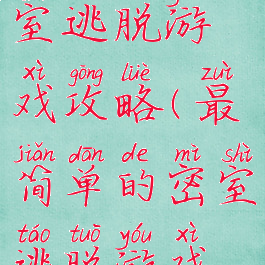 室逃脱游
xì gōng lüè zuì
戏攻略(最
jiǎn dān de mì shì
简单的密室
táo tuō yóu xì
逃脱游戏